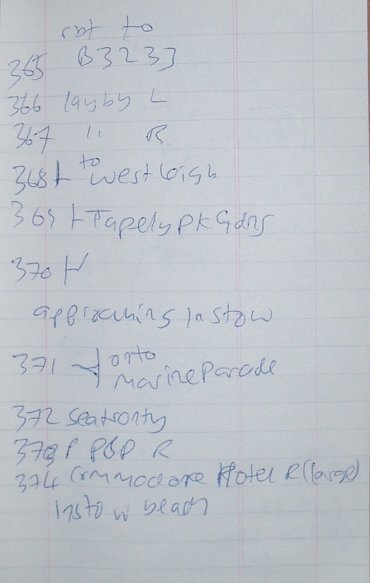 rbt to
365 B3233
366 layby L
367 " R
368 to Westleigh
369 Tapely Pk Gdns
370
approaching Instow
371 onto
Marine Parade
372 Seafronty
373 P P&P R
374 Commodore Hotel R (large)
Instow beach